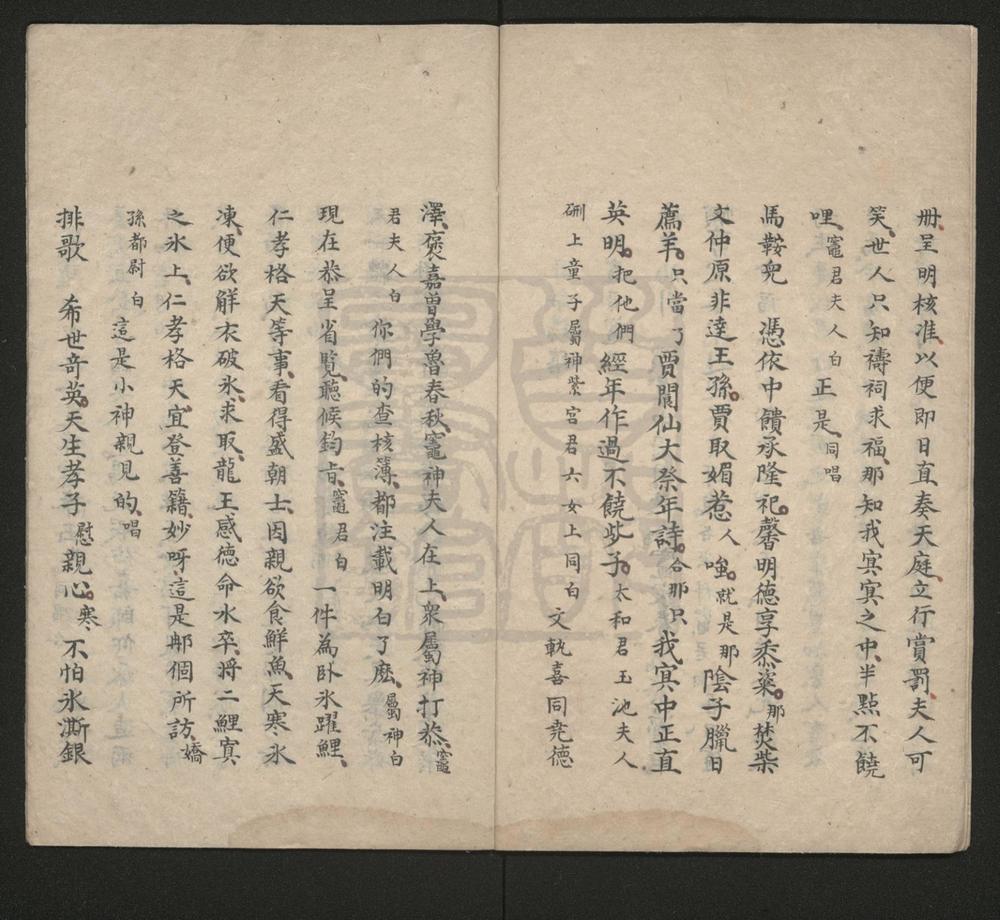 冊呈明核准以便即日直奏天庭立行賞罰夫人可
笑世人只知禱祠求福那知我冥冥之中半點不饒
哩竈君夫人白正是同唱
馬鞍兒 憑依中饋承隆祀馨明德享黍粢那焚柴
文仲原非達王孫賈取媚惹人嗤就是那陰子臘日
薦羊只當了賈閬仙大祭年詩合那只我冥中正直
英明把他們經年作過不饒此子太和君玉池夫人
硎上童子屬神紫宮君六女上同白文執喜同堯德
澤褒嘉曾學魯春秋竈神夫人在上衆屬神打恭竈
君夫人白你們的查核簿都注載明白了麽屬神白
現在恭呈省覽聽候鈞旨竈君白一件為卧氷躍鯉
仁孝格天等事看得盛朝士因親欲食鮮魚天寒氷
凍便欲觧衣破氷求取龍王感德命水卒將二鯉寘
之氷上仁孝格天宜登善籍妙呀這是那個所訪嬌
孫都尉白這是小神親見的唱
排歌 希世竒英天生孝子慰親心寒不怕氷澌銀